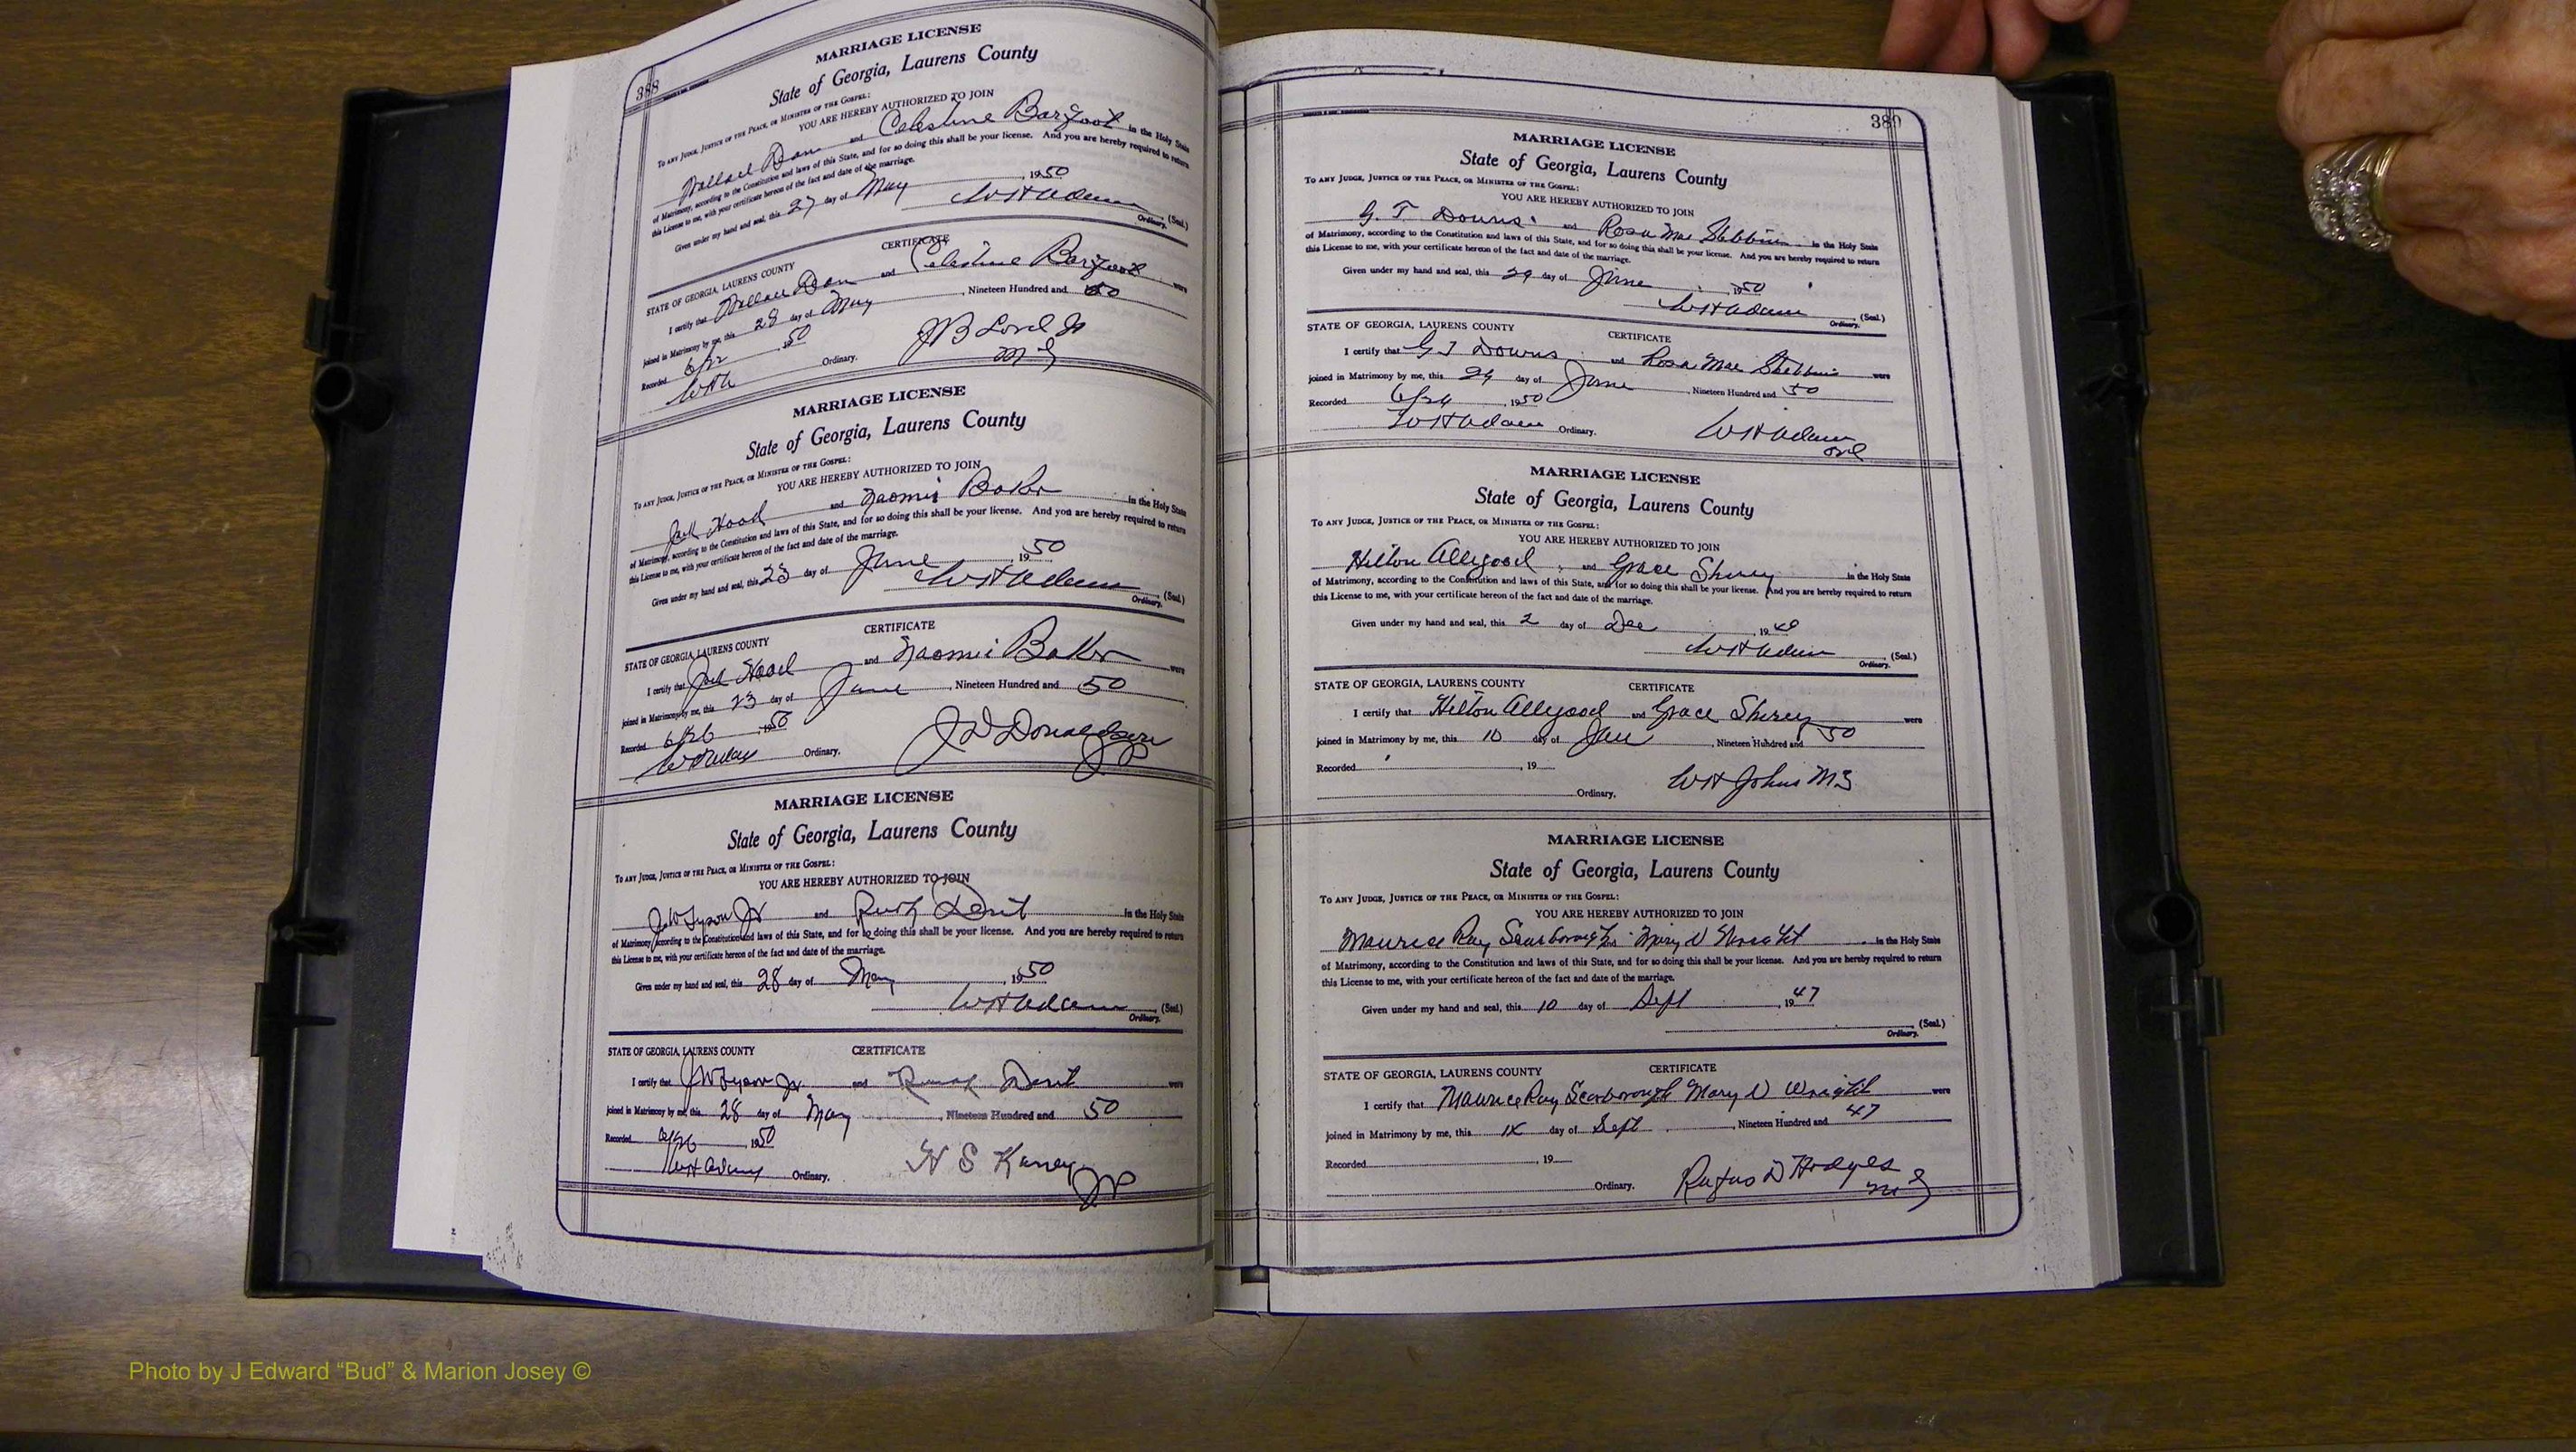 388
MARRIAGE LICENSE
State of Georgia, Laurens County
TO ANY JUDGE, JUSTICE OF THE PEACE, OR MINISTER OF THE GOSPEL:
YOU ARE HEREBY AUTHORIZED TO JOIN
Wallace Dean and Celestine Barfoot in the Holy State
of Matrimony, according to the Constitution and laws of this State, and for so doing this shall be your license. And you are hereby required to return
this License to me, with your certificate hereon of the fact and date of the marriage.
Given under my hand and seal, this 27 day of May, 1950
WH Adams (Seal.)
Ordinary.
CERTIFICATE
STATE OF GEORGIA, LAURENS COUNTY
I certify that Wallace Dean and Celestine Barfoot were
joined in Matrimony by me, this 28 day of May, Nineteen Hundred and 50
Recorded 6/22, 1950
Ordinary. JB Lovel Jr
MG
MARRIAGE LICENSE
State of Georgia, Laurens County
TO ANY JUDGE, JUSTICE OF THE PEACE, OR MINISTER OF THE GOSPEL:
YOU ARE HEREBY AUTHORIZED TO JOIN
Hood and Naomi Baker in the Holy State
of Matrimony, according to the Constitution and laws of this State, and for so doing this shall be your license. And you are hereby required to return
this License to me, with your certificate hereon of the fact and date of the marriage.
Given under my hand and seal, this 23 day of June, 1950
WH Adams (Seal.)
Ordinary.
CERTIFICATE
STATE OF GEORGIA, LAURENS COUNTY
I certify that Hood and Naomi Baker were
joined in Matrimony by me, this 23 day of June, Nineteen Hundred and 50
Recorded 6/26, 1950
Ordinary. J D Donaldson
JP
MARRIAGE LICENSE
State of Georgia, Laurens County
TO ANY JUDGE, JUSTICE OF THE PEACE, OR MINISTER OF THE GOSPEL:
YOU ARE HEREBY AUTHORIZED TO JOIN
J.W Tyson Jr and Ruth in the Holy State
of Matrimony, according to the Constitution and laws of this State, and for so doing this shall be your license. And you are hereby required to return
this License to me, with your certificate hereon of the fact and date of the marriage.
Given under my hand and seal, this 28 day of May, 1950
WH Adams (Seal.)
Ordinary.
STATE OF GEORGIA, LAURENS COUNTY CERTIFICATE
I certify that JW Tyson Jr. and were
joined in Matrimony by me, this 28 day of May, Nineteen Hundred and 50
Recorded 6/26, 1950
WH Adams Ordinary. H S Kaney
JP
MARRIAGE LICENSE
State of Georgia, Laurens County
TO ANY JUDGE, JUSTICE OF THE PEACE, OR MINISTER OF THE GOSPEL:
YOU ARE HEREBY AUTHORIZED TO JOIN
G. T Downs. and Rosa Mae in the Holy State
of Matrimony, according to the Constitution and laws of this State, and for so doing this shall be your license. And you are hereby required to return
this License to me, with your certificate hereon of the fact and date of the marriage.
Given under my hand and seal, this day of June, 1950
WH Adams (Seal.)
Ordinary.
STATE OF GEORGIA, LAURENS COUNTY CERTIFICATE
I certify that G T Downs and Rosa Mae were
joined in Matrimony by me, this 24 day of June, Nineteen Hundred and 50
Recorded 6/24, 1950
WH Adams Ordinary. WH Adams
Ord
MARRIAGE LICENSE
State of Georgia, Laurens County
TO ANY JUDGE, JUSTICE OF THE PEACE, OR MINISTER OF THE GOSPEL:
YOU ARE HEREBY AUTHORIZED TO JOIN
Hilton Allgood and Grace Shirey in the Holy State
of Matrimony, according to the Constitution and laws of this State, and for so doing this shall be your license. And you are hereby required to return
this License to me, with your certificate hereon of the fact and date of the marriage.
Given under my hand and seal, this 2 day of Dec, 1949
WH Adams (Seal.)
Ordinary.
STATE OF GEORGIA, LAURENS COUNTY CERTIFICATE
I certify that Hilton Allgood and Grace Shirey were
joined in Matrimony by me, this 10 day of Jan, Nineteen Hundred and 50
Recorded, 19
Ordinary. WH Johns MG
MARRIAGE LICENSE
State of Georgia, Laurens County
TO ANY JUDGE, JUSTICE OF THE PEACE, OR MINISTER OF THE GOSPEL:
YOU ARE HEREBY AUTHORIZED TO JOIN
Maurice Ray Scarborough Mary D Wright in the Holy State
of Matrimony, according to the Constitution and laws of this State, and for so doing this shall be your license. And you are hereby required to return
this License to me, with your certificate hereon of the fact and date of the marriage.
Given under my hand and seal, this 10 day of Sept, 1947
(Seal.)
Ordinary.
STATE OF GEORGIA, LAURENS COUNTY CERTIFICATE
I certify that Maurice Ray Scarborough Mary D Wright were
joined in Matrimony by me, this day of Sept, Nineteen Hundred and 47
Recorded, 19
Ordinary. Rufus D Hodges
MG
Photo by J Edward “Bud” & Marion Josey ©